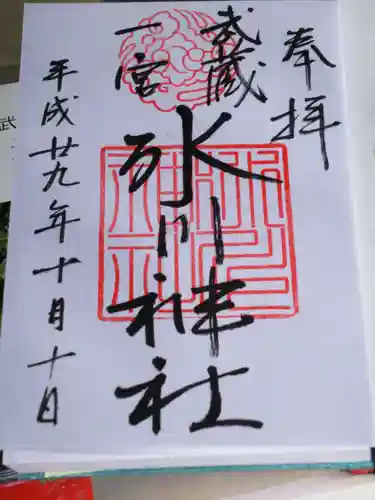 奉拝
武蔵
一宮
氷川神社
平成廿九年十月十日
武